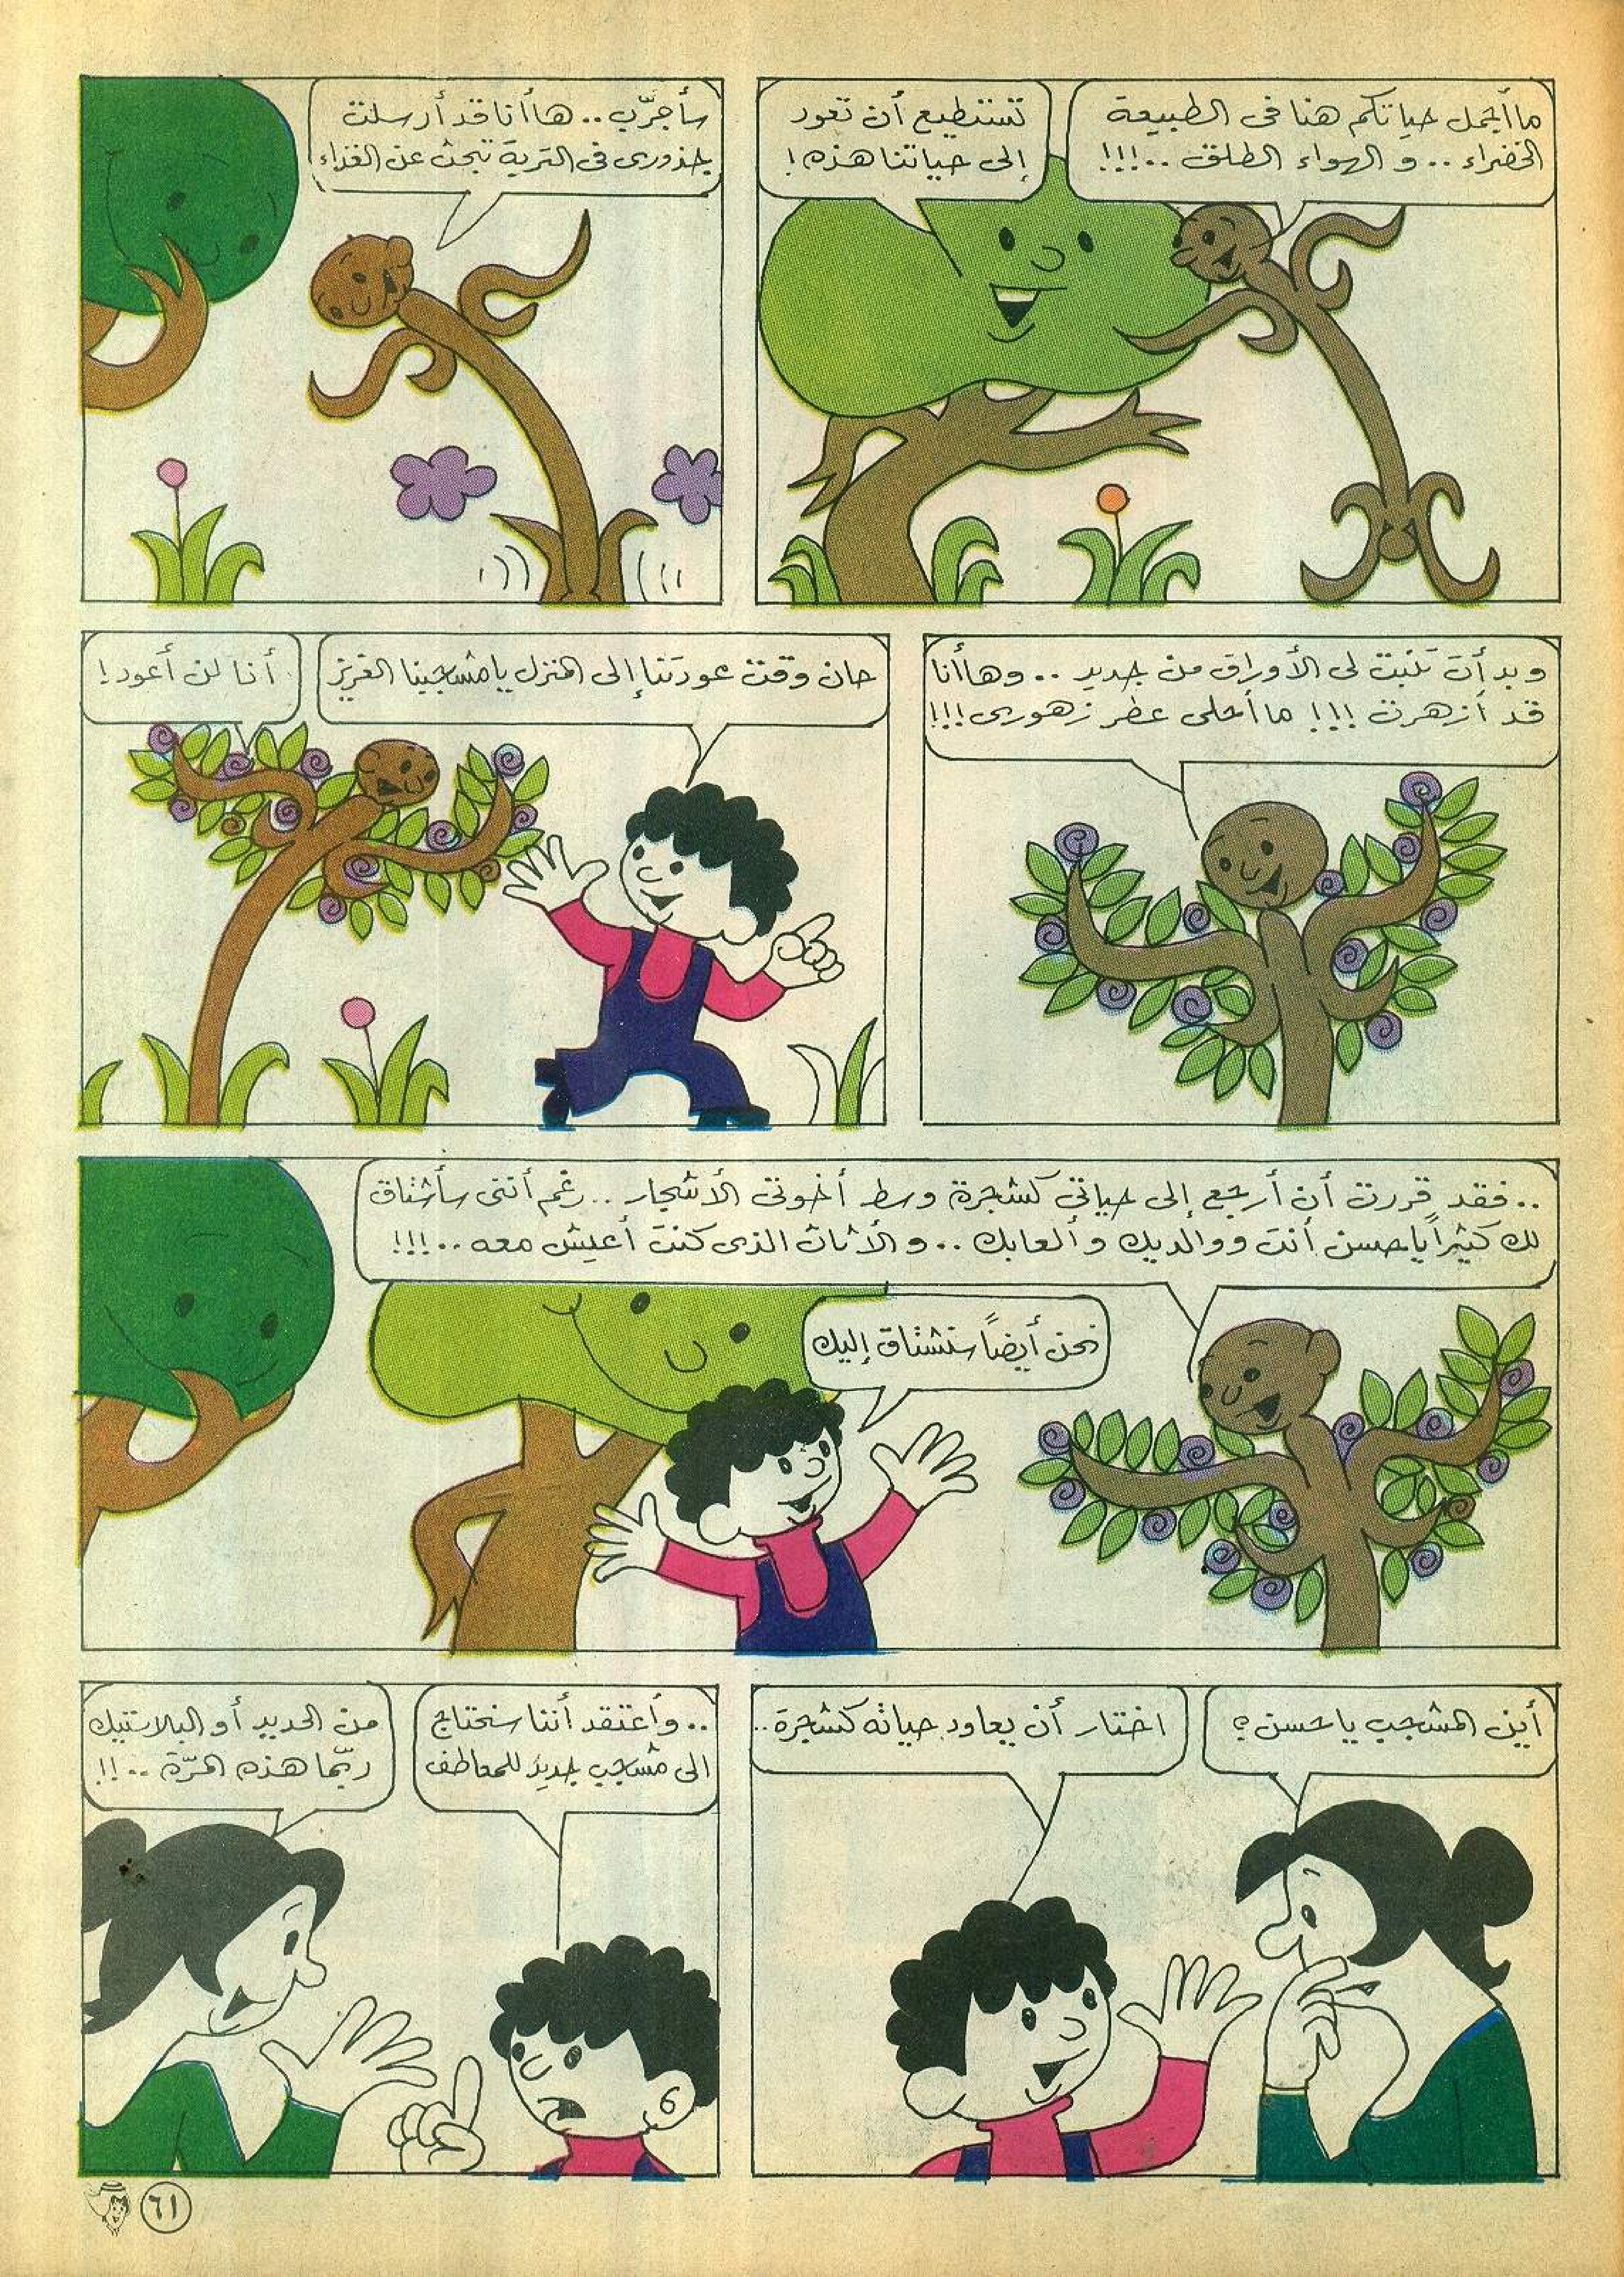 ما أجمل حياتكم هنا فى الطبيعة
الخضراء .. و الهواء الطلق ..!!!
تستطيع أن تعود
إلى حياتنا هذه !
سأجرّب .. ها أنا قد أرسلت
جذورى فى التربة تبحث عن الغذاء
و بدأت تنبت لى الأوراق من جديد .. وها أنا
قد أزهرت !!! ما أحلى عطر زهورى !!!
حان وقت عودتنا إلى المنزل يا مشجبنا العزيز
أنا لن أعود !
.. فقد قررت أن أرجع إلى حياتى كشجرة وسط أخوتى الأشجار .. رغم أننى سأشتاق
لك كثيراً يا حسن أنت ووالديك و ألعابك .. و الأثاث الذى كنت أعيش معه ..!!!
نحن أيضاً سنشتاق إليك
أين المشجب يا حسن ؟
اختار أن يعاود حياته كشجرة ..
.. وأعتقد أننا سنحتاج
الى مشجب جديد للمعاطف
من الحديد أو البلاستيك
ربّما هذه المرّة ..!!
٦١